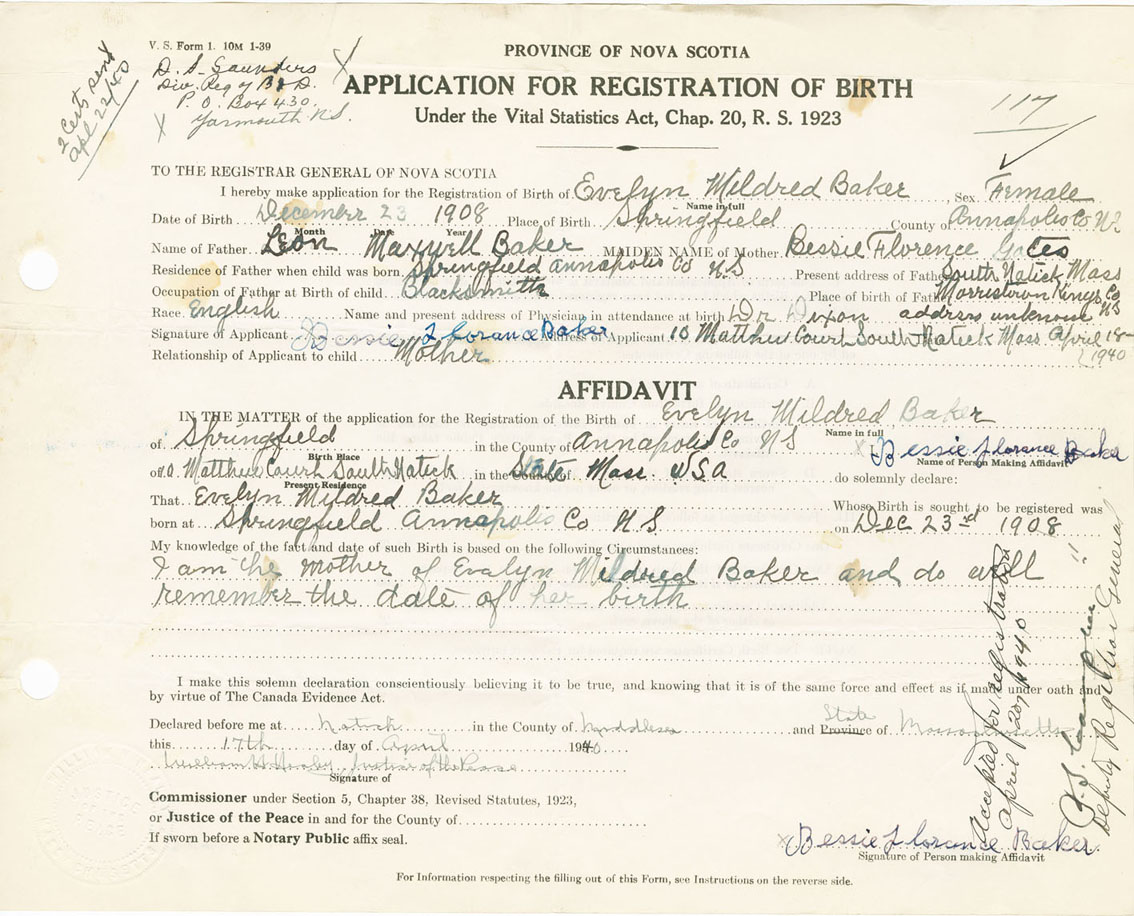 V. S. Form 1. 10M 1-39
D. S. Saunders
Div. Reg of B & D.
P. O. Box 430.
Yarmouth N.S.
2 Certs sent
Apl 22/40
PROVINCE OF NOVA SCOTIA
APPLICATION FOR REGISTRATION OF BIRTH
Under the Vital Statistics Act, Chap. 20, R. S. 1923
117
TO THE REGISTRAR GENERAL OF NOVA SCOTIA
I hereby make application for the Registration of Birth of Evelyn Mildred Baker, Sex Female
Name in full
Date of Birth December 23 1908 Place of Birth Springfield County of Annapolis Co N.S
Month Date Year
Name of Father Leon Maxwell Baker MAIDEN NAME of Mother Bessie Florence Gates
Residence of Father when child was born Springfield Annapolis Co N.S Present address of Father South Natick Mass
Occupation of Father at Birth of child Blacksmith Place of birth of Father Morristown Kings Co NS
Race English Name and present address of Physician in attendance at birth Dr Dixon address unknown
Signature of Applicant Bessie Florance Baker Address of Applicant 10 Matthew Court South Natick Mass April 18-1940
Relationship of Applicant to child Mother
AFFIDAVIT
IN THE MATTER of the application for the Registration of the Birth of Evelyn Mildred Baker
Name in full
of Springfield in the County of Annapolis Co N S X Bessie Florance Baker
Birth Place
Name of Person Making Affidavit
of 10 Matthew Court South Natick in the County of State Mass. USA do solemnly declare:
Present Residence
That Evelyn Mildred Baker Whose Birth is sought to be registered was
born at Springfield Annapolis Co N.S. on Dec 23rd 1908
My knowledge of the fact and date of such Birth is based on the following Circumstances:
I am the mother of Evelyn Mildred Baker and do well
remember the date of her birth
I make this solemn declaration conscientiously believing it to be true, and knowing that it is of the same force and effect as if made under oath and
by virtue of The Canada Evidence Act.
Declared before me at Natick in the County of Middlesex and Province State of Massachusetts
this 17th day of April 1940
Justice of the Peace
Signature of
Commissioner under Section 5, Chapter 38, Revised Statutes, 1923,
or Justice of the Peace in and for the County of
If sworn before a Notary Public affix seal.
X Bessie Florance Baker.
Signature of Person making Affidavit
For Information respecting the filling out of this Form, see Instructions on the reverse side.
Accepted for registration
April 20, 1940
Deputy Registrar General